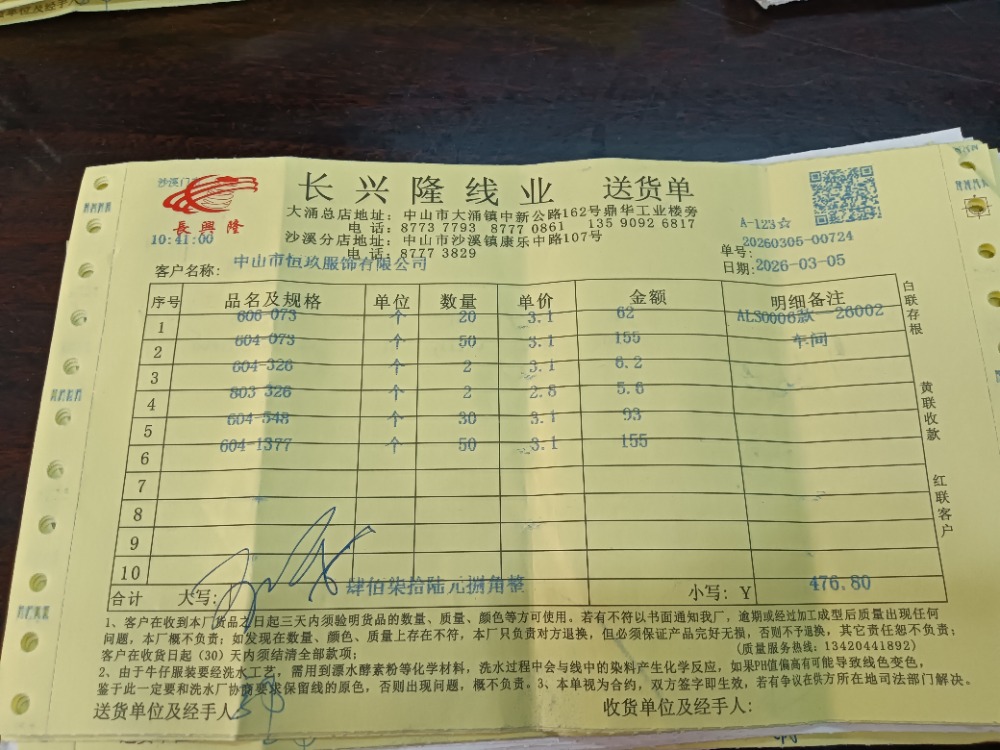 沙溪门
長興隆
长兴隆线业 送货单
大涌总店地址：中山市大涌镇中新公路162号鼎华工业楼旁
电 话：8773 7793 8777 0861 135 9092 6817
沙溪分店地址：中山市沙溪镇康乐中路107号
电 话：8777 3829
10:41:00
A-123☆
单号：20260305-00724
日期：2026-03-05
客户名称：中山市恒玖服饰有限公司
序号 品名及规格 单位 数量 单价 金额 明细备注
1 606-073 个 20 3.1 62 ALS0006款 26002
2 604-073 个 50 3.1 155 车间
3 604-326 个 2 3.1 6.2
4 803-326 个 2 2.8 5.6
5 604-548 个 30 3.1 93
6 604-1377 个 50 3.1 155
7
8
9
10
合计 大写：肆佰柒拾陆元捌角整 小写：Y 476.80
白联存根
黄联收款
红联客户
1、客户在收到本厂货品之日起三天内须验明货品的数量、质量、颜色等方可使用。若有不符以书面通知我厂，逾期或经过加工成型后质量出现任何
问题，本厂概不负责；如发现在数量、颜色、质量上存在不符，本厂只负责对方退换，但必须保证产品完好无损，否则不予退换，其它责任恕不负责；
客户在收货日起（30）天内须结清全部款项；
(质量服务热线：13420441892)
2、由于牛仔服装要经洗水工艺，需用到漂水酵素粉等化学材料，洗水过程中会与线中的染料产生化学反应，如果PH值偏高有可能导致线色变色，
鉴于此一定要和洗水厂协商要求保留线的原色，否则出现问题，概不负责。3、本单视为合约，双方签字即生效，若有争议在供方所在地司法部门解决。
送货单位及经手人
收货单位及经手人：